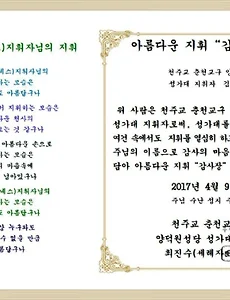 )지휘자님의 지휘
네스)지휘자님의
하는 모습은
도 아름답구나
서 지휘하는 모습은
다운 천사의
르는 것 같구나
아름다운 손으로
하는 모습은
의 마음에
남아있구나
네스)지휘자님의
하는 모습은
도 아름답구나
누구라도
수 없을 만큼
름답구나
아름다운 지휘 "감
천주교 춘천교구 양
성가대 지휘자 김
위 사람은 천주교 춘천교구
성가대 지휘자로써, 성가대를
여건 속에서도 지휘를 열심히 하
주님의 이름으로 감사의 마음
담아 아름다운 지휘 "감사장"
2017년 4월 9
주님 수난 성지 주
천주교 춘천교
양덕원성당 성가대
최진수(세례자